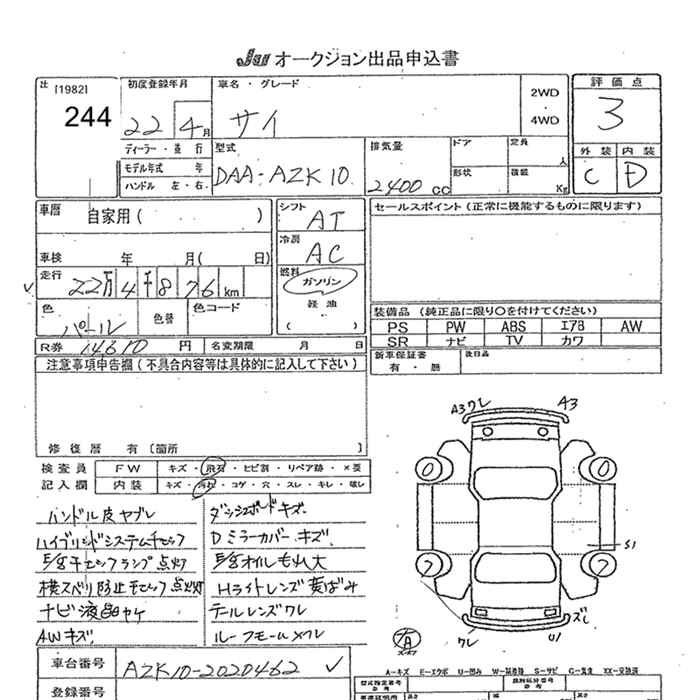 JU オークション出品申込書
[1982]
244
初度登録年月
22 4月
車名・グレード
サイ
2WD
・
4WD
評価点
3
ディーラー・並行
モデル年式 年
ハンドル 左・右
型式
DAA-AZK10
排気量
2400 CC
ドア
定員
人
形状
積載
Kg
外装 内装
C D
車歴
自家用( )
車検 年 月( 日)
走行
22万4千876km
色
パール
色替
色コード
シフト
AT
冷房
AC
燃料
ガソリン
軽油
( )
セールスポイント(正常に機能するものに限ります)
装備品 (純正品に限り〇を付けてください)
PS PW ABS エアB AW
SR ナビ TV カワ
新車保証書
有・無
後日品
R券 14610 円 名変期限 月 日
注意事項申告欄(不具合内容等は具体的に記入して下さい)
修復歴 有〔箇所 〕
検査員 FW キズ・飛石・ヒビ割・リペア跡・×要
記入欄 内装 キズ・汚れ・コゲ・穴・スレ・キレ・破レ
ハンドル皮ヤブレ
ハイブリッドシステムチェック
横スベリ防止チェック点灯
ナビ液晶ヤケ
AWキズ
ダッシュボードキズ
Dミラーカバーキズ
Hライトレンズ黄ばみ
テールレンズワレ
A3ワレ A3
S1
ズレ
ワレ U1
車台番号 AZK10-2020462
登録番号
A-キズ E-エクボ U-凹み W-補修跡 S-サビ C-腐食 XX-交換済